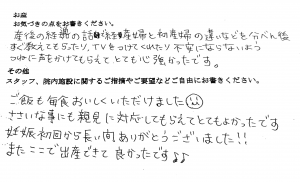 お産
お気づきの点をお書きください。
産後の経過の話や経産婦と初産婦の違いなどを分べん後
すぐ教えてもらったり、TVをつけてくれたり不安にならないよう
つねに声をかけてもらえてとても心強かったです。
その他
スタッフ、院内施設に関するご指摘やご要望などご自由にお書きください。
ご飯も毎食おいしくいただけました
ささいな事にも親身に対応してもらえてとてもよかったです
妊娠初回から長い間ありがとうございました!!
またここで出産できて良かったです♪♪